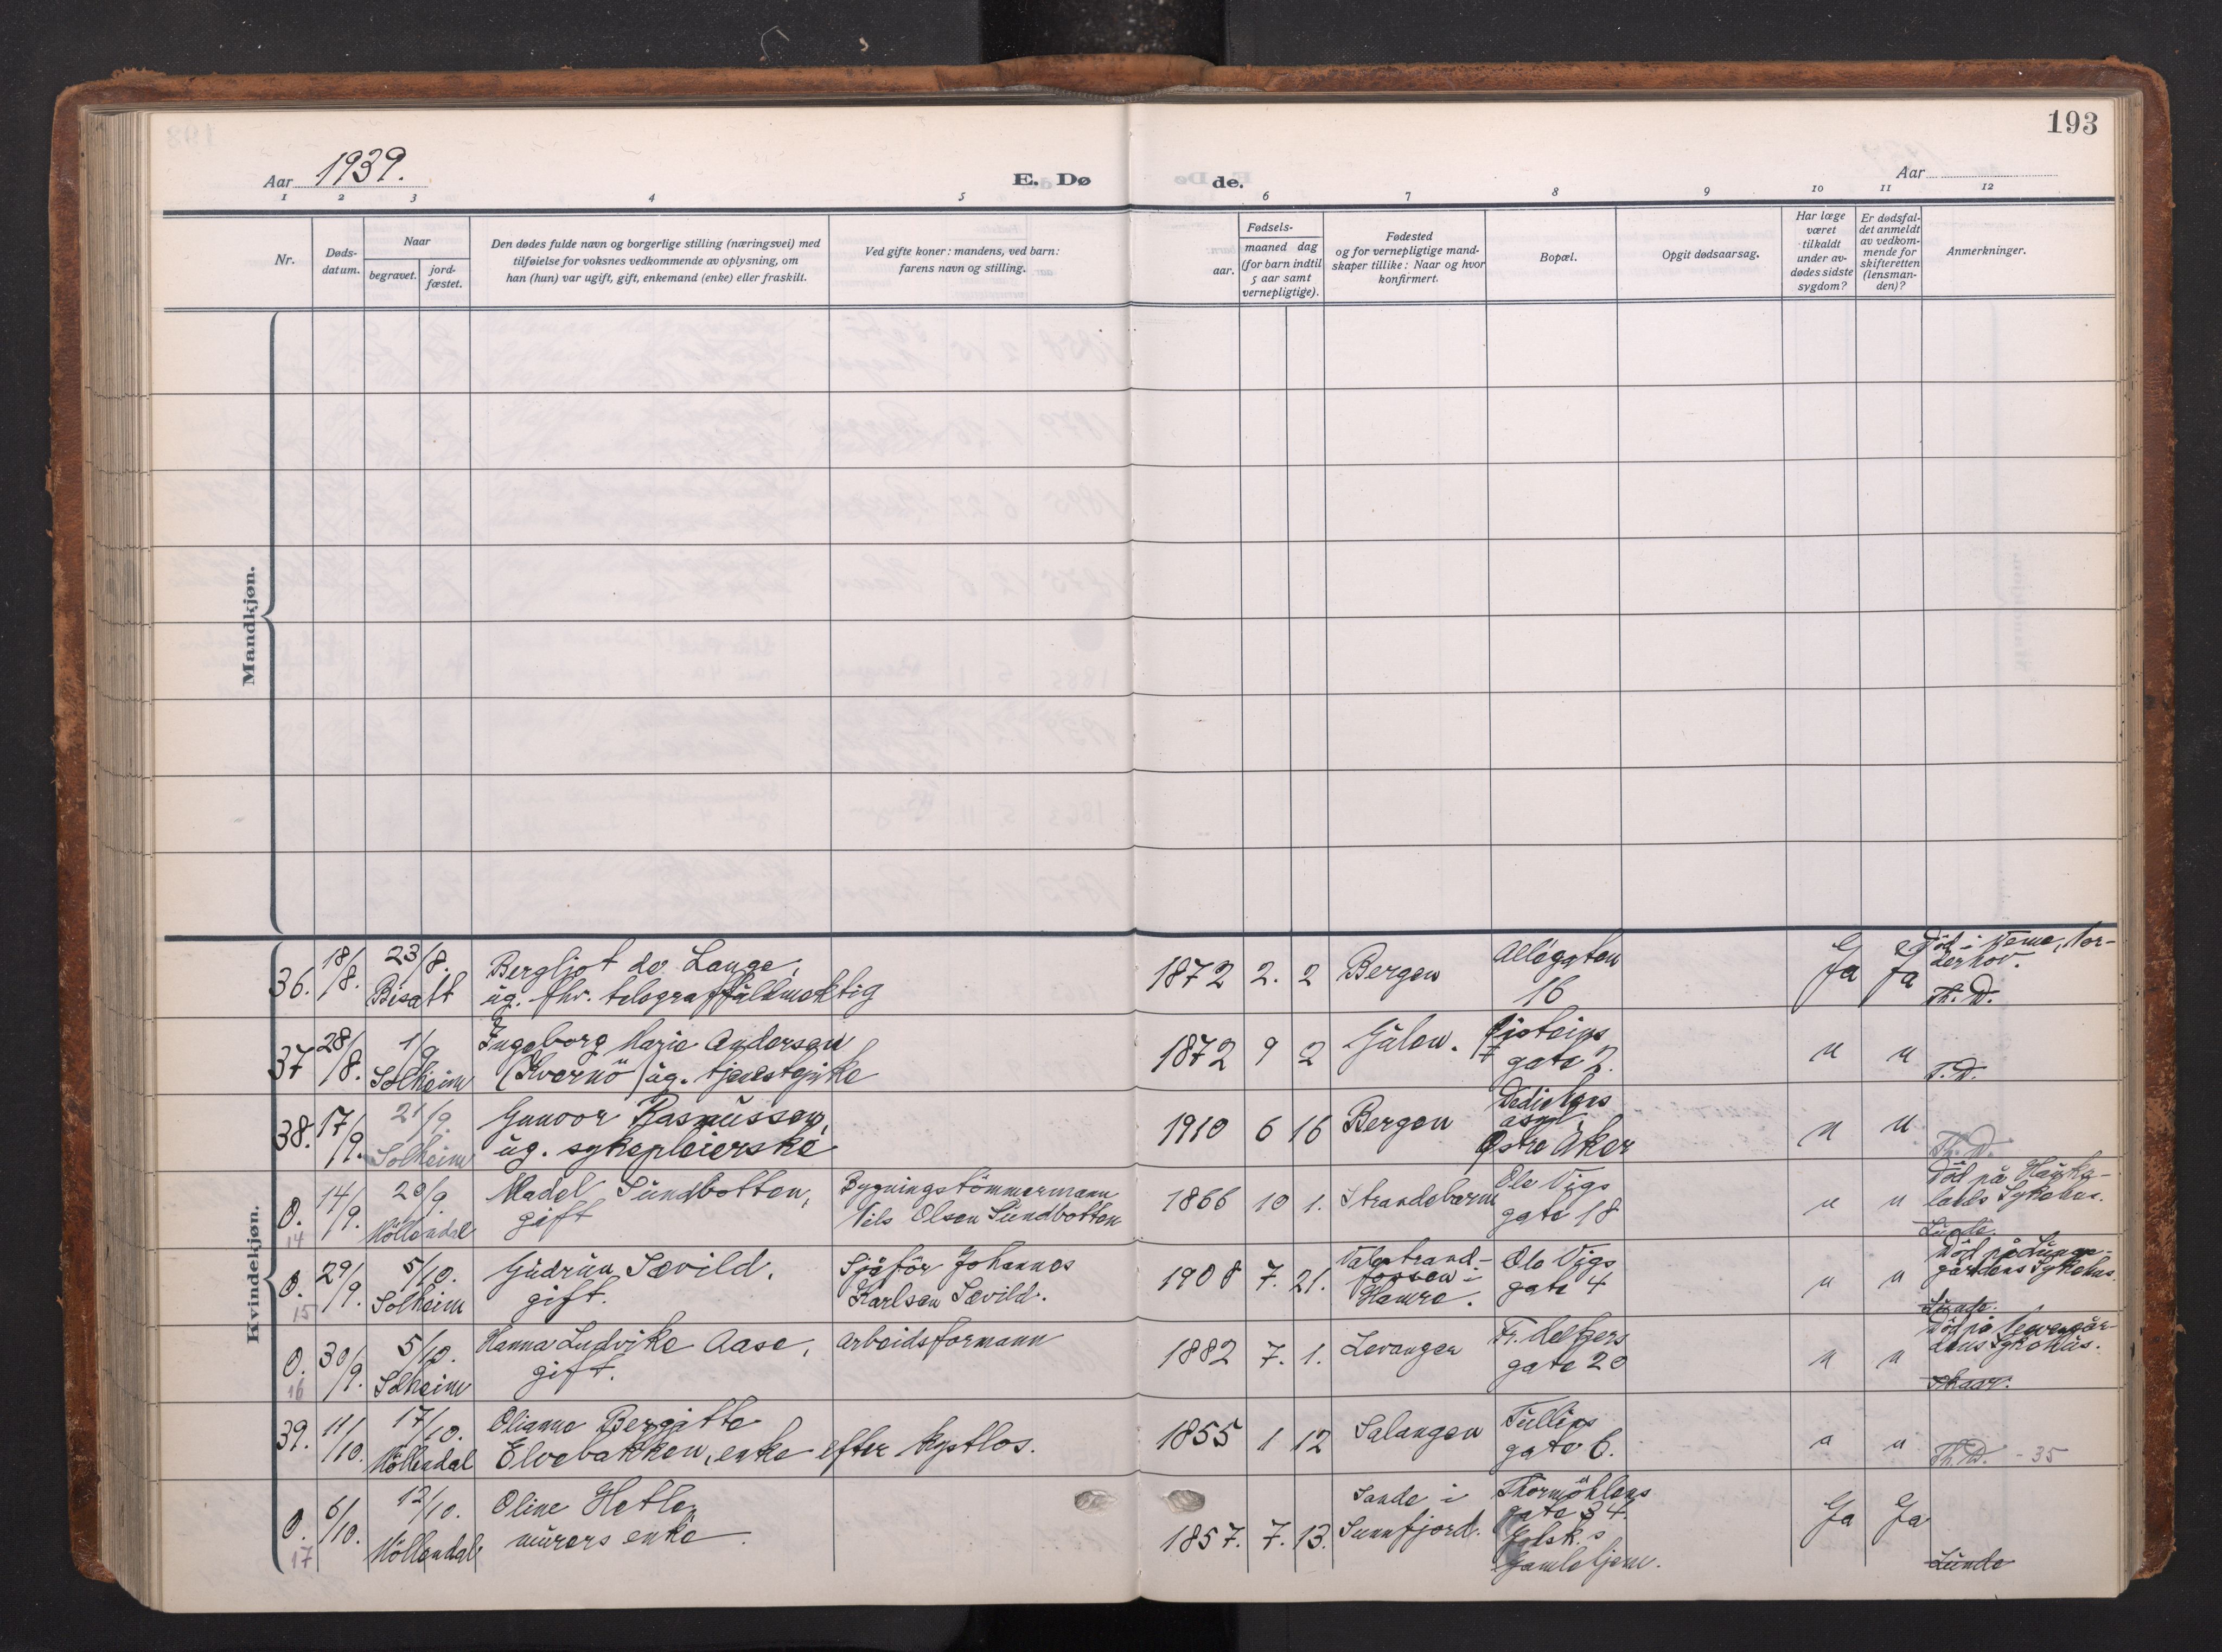 193
Aar 1939.
E. Dø
de.
Aar
1 2 3 4 5 6 7 8 9 10 11 12
Nr.
Døds-
datum.
Naar
begravet.
jord-
fæstet.
Den dødes fulde navn og borgerlige stilling (næringsvei) med
tilføielse for voksnes vedkommende av oplysning, om
han (hun) var ugift, gift, enkemand (enke) eller fraskilt.
Ved gifte koner: mandens, ved barn:
farens navn og stilling.
Fødsels-
aar.
maaned dag
(for barn indtil
5 aar samt
vernepligtige).
Fødested
og for vernepligtige mand-
skaper tillike: Naar og hvor
konfirmert.
Bopæl.
Opgit dødsaarsag.
Har læge
været
tilkaldt
under av-
dødes sidste
sygdom?
Er dødsfal-
det anmeldt
av vedkom-
mende for
skifteretten
(lensman-
den)?
Anmerkninger.
Mandkjøn.
Kvindekjøn.
36. 18/8. 23/8. Bergljot de Lange, 1872 2. 2 Bergen Allégaten Ja Ja Död i
Bisatt ug. fhv. telegraffullmektig 16 derhov.
Th. D.
37 28/8. 1/9 Ingeborg Marie Andersen 1872 9 2 Gulen. gate 7. " "
Solheim (Kvernö) ug. tjenestepike T. D.
38. 17/9. 21/9. Gunvor Rasmussen, 1910 6 16 Bergen asyl, " "
Solheim ug. sykepleierske Östre Aker Th. D.
0. 14/9. 20/9. Madel Sundbotten, Bygningstömmermann 1866 10 1. Strandebarm Ole Vigs " " Död på Hauke-
14 Möllendal gift Nils Olsen Sundbotten gate 18 lands Sykehus.
Lunde.
0. 29/9. 5/10. Gudrun Sævild, Sjåför Johannes 1908 7. 21. Valestrand- Ole Vigs " " Död på Lunge-
15 Solheim gift. Karlsen Sævild. fossen i gate 4 gårdens Sykehus.
Hamre. Lunde.
0. 30/9. 5/10. Hanna Ludvike Aase, Arbeidsformann 1882 7. 1. Levanger Fr. Meltzers " " Död på
16 Solheim gift. gate 20 dens Sykehus.
Skaar.
39. 11/10. 17/10. Olianna Bergitte 1855 1 12 Salangen Tullins " "
Möllendal Elvebakken, enke efter kystlos. gate 6. Th. D. - 35
0. 6/10. 12/10. Oline Hetle, 1857. 7. 13. Sande i Thormöhlens Ja Ja
17 Möllendal murers enke. Sunnfjord. gate 34.
Gamlehjem.
Lunde